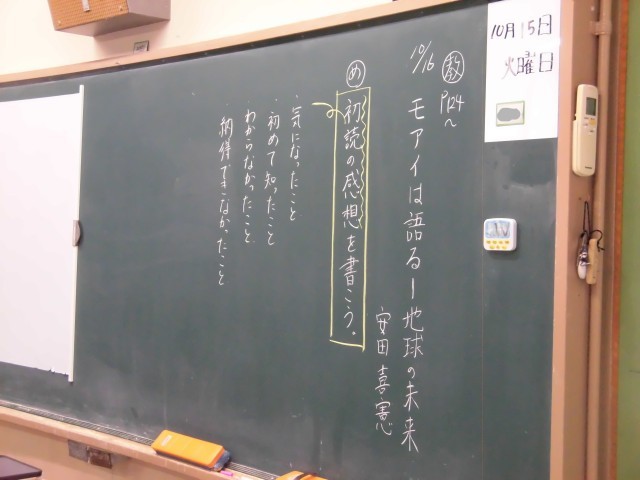 10月15日
火曜日
教 P124〜
10/16 モアイは語るー地球の未来
安田喜憲
め 初読の感想を書こう。
・気になったこと
・初めて知ったこと
・わからなかったこと
・納得できなかったこと